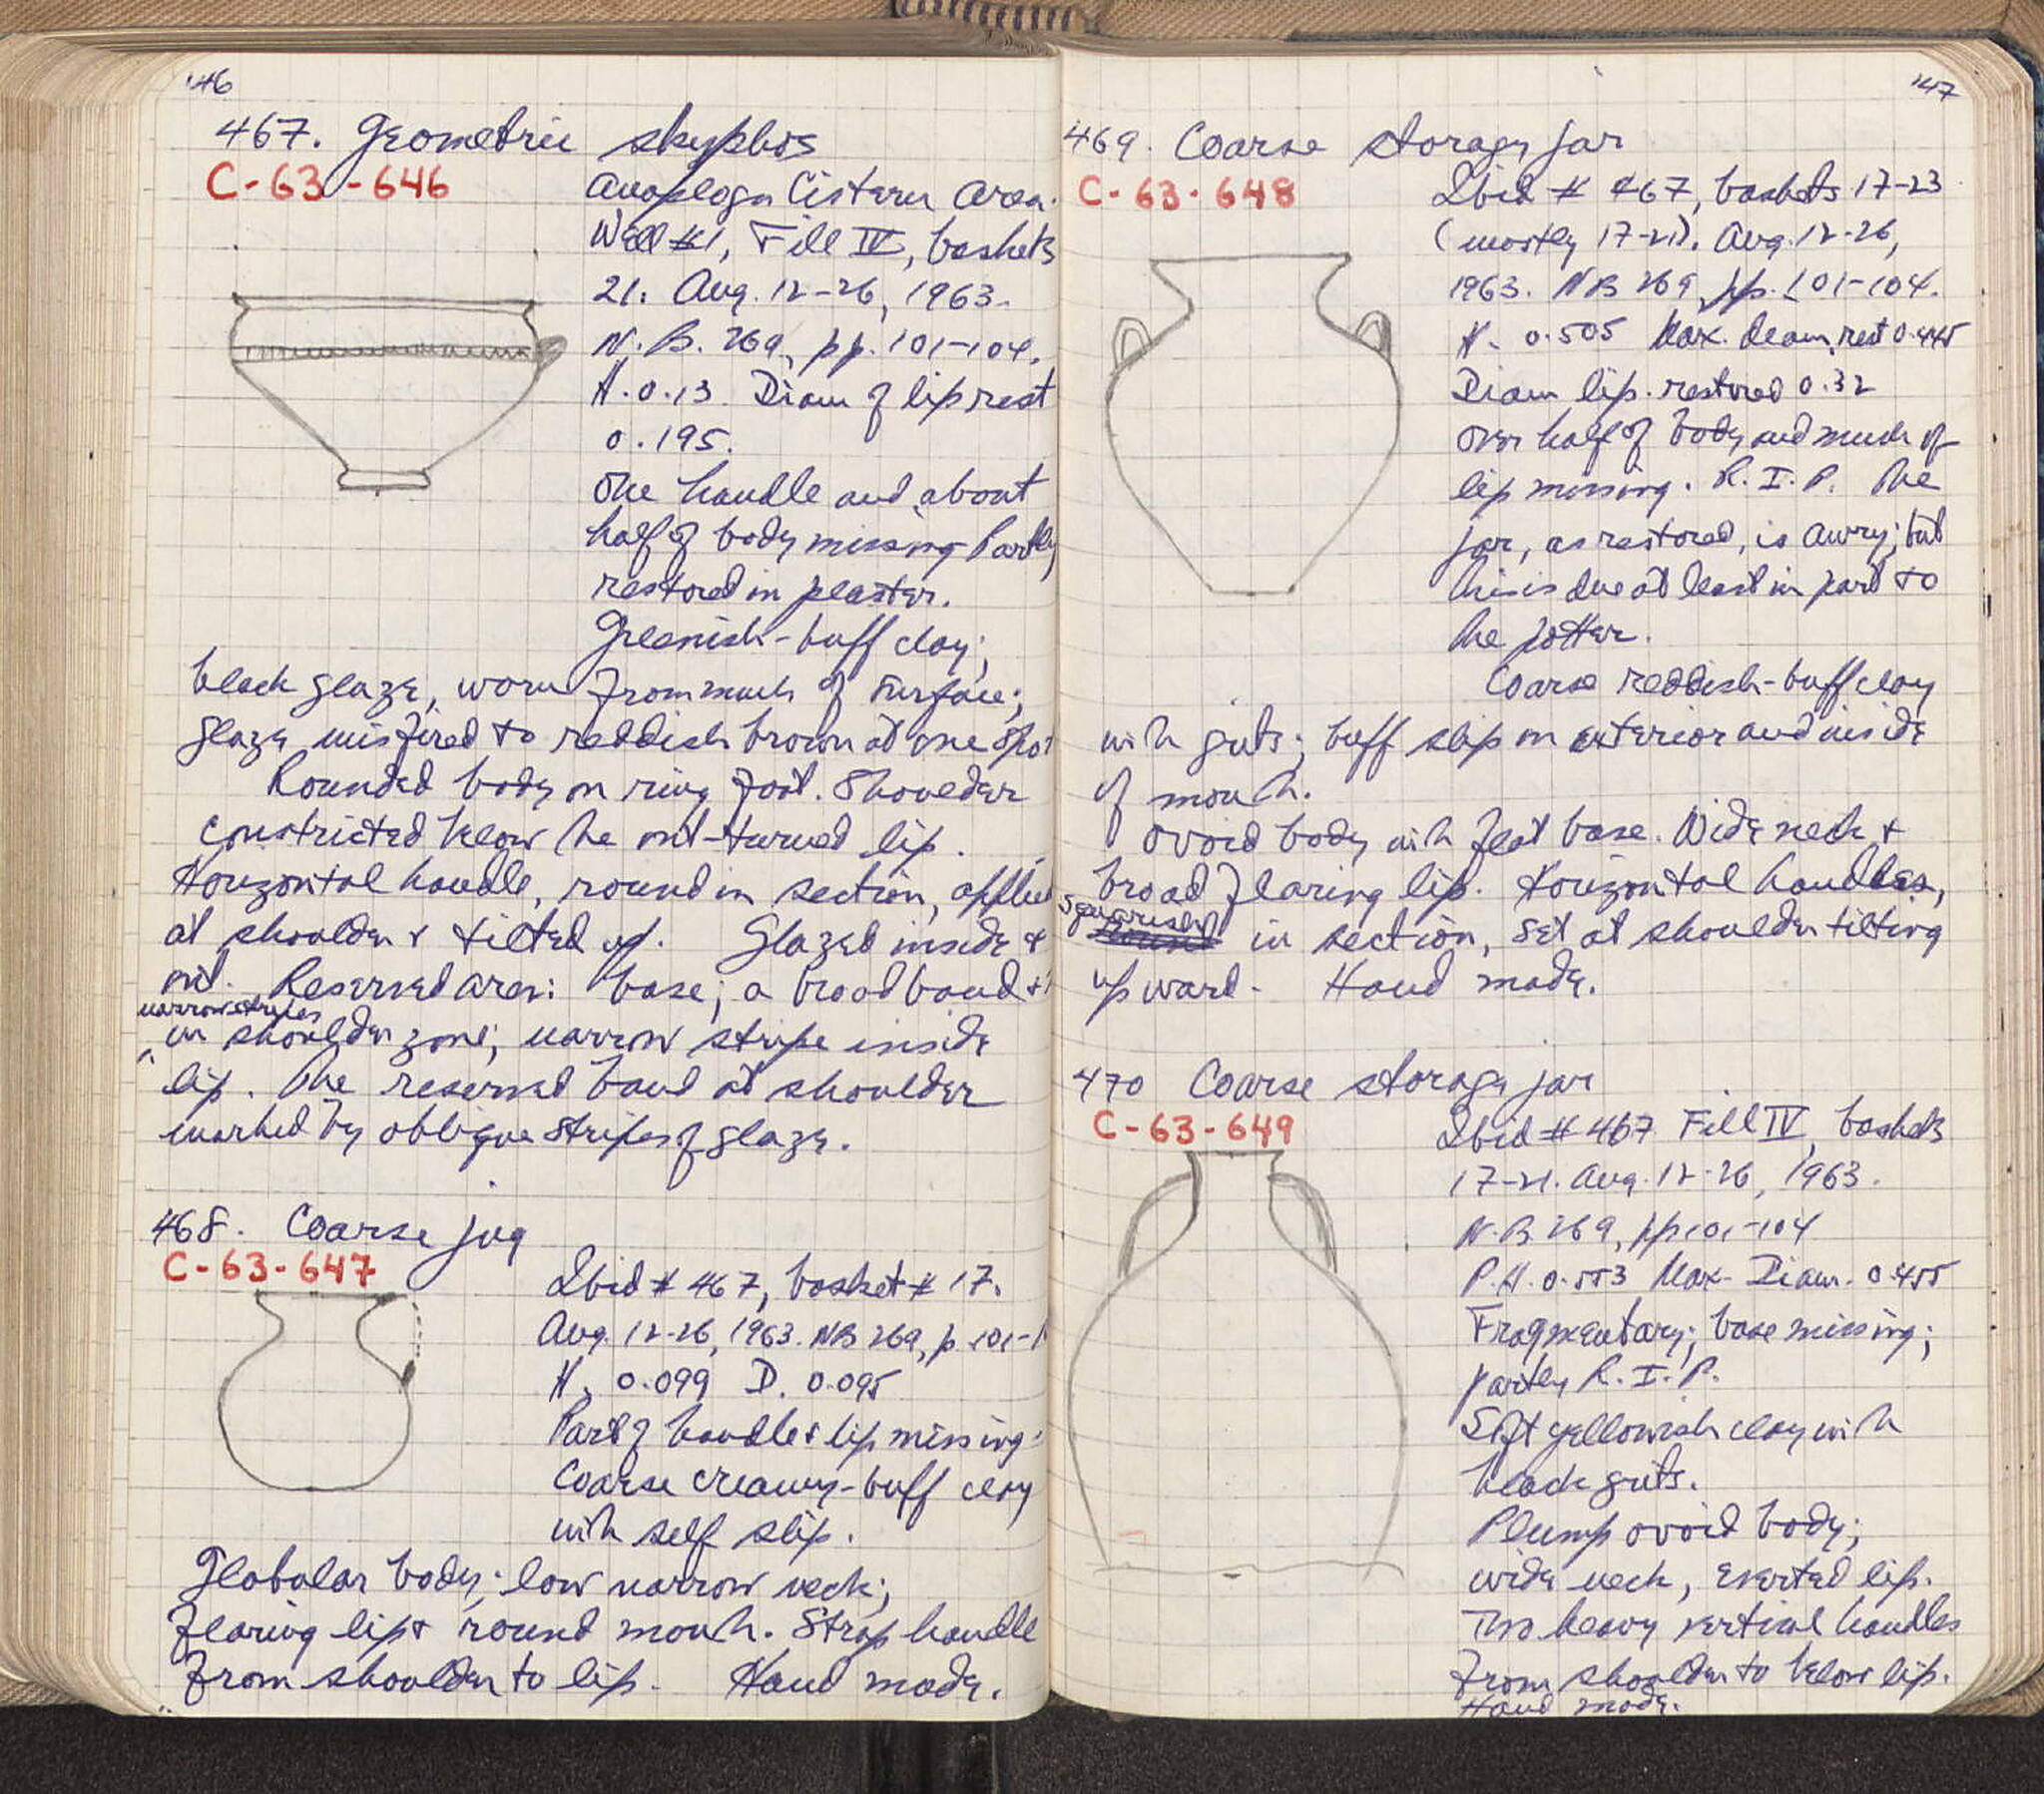 146
467. Geometric skyphos
C-63-646
Anaploga Cistern Area.
Well #1, Fill IV, baskets
21. Aug. 12-26, 1963.
N.B. 269, pp. 101-104.
H. 0.13 Diam of lip rest
0.195.
One handle and about
half of body missing Partly
restored in plaster.
Greenish-buff clay;
black glaze, worn from much of surface;
glaze misfired to reddish brown at one spot
Rounded body on ring foot. Shoulder
constricted below the out-turned lip.
Horizontal handle, round in section, applied
at shoulder & tilted up. Glazed inside &
out. Reserved area: base; a broad band &
narrow stripes
in shoulder zone; narrow stripe inside
lip. The reserved band at shoulder
marked by oblique stripes of glaze.
468. Coarse jug
C-63-647
Ibid # 467, basket # 17.
Aug. 12-26, 1963. NB 269, p. 101-1
H. 0.099 D. 0.095
Part of handle & lip missing.
Coarse creamy-buff clay
with self slip.
Globular body; low narrow neck;
flaring lip & round mouth. Strap handle
from shoulder to lip. Hand made.
147
469. Coarse storage jar
C-63-648
Ibid # 467, baskets 17-23
(mostly 17-21). Aug. 12-26,
1963. NB 269, pp. 101-104.
H. 0.505 Max. diam. rest 0.445
Diam lip. restored 0.32
Over half of body and much of
lip missing. R.I.P. The
jar, as restored, is awry; but
this is due at least in part to
the potter.
Coarse reddish-buff clay
with grits; buff slip on exterior and inside
of mouth.
Ovoid body with flat base. Wide neck &
broad flaring lip. Horizontal handles,
squarish
round in section, set at shoulder tilting
upward. Hand made.
470 Coarse storage jar
C-63-649
Ibid # 467 Fill IV, baskets
17-21. Aug. 12-26, 1963.
N.B. 269, pp 101-104
P.H. 0.553 Max. Diam. 0.455
Fragmentary; base missing;
partly R.I.P.
Soft yellowish clay with
black grits.
Plump ovoid body;
wide neck, everted lip.
Two heavy vertical handles
from shoulder to below lip.
Hand made.